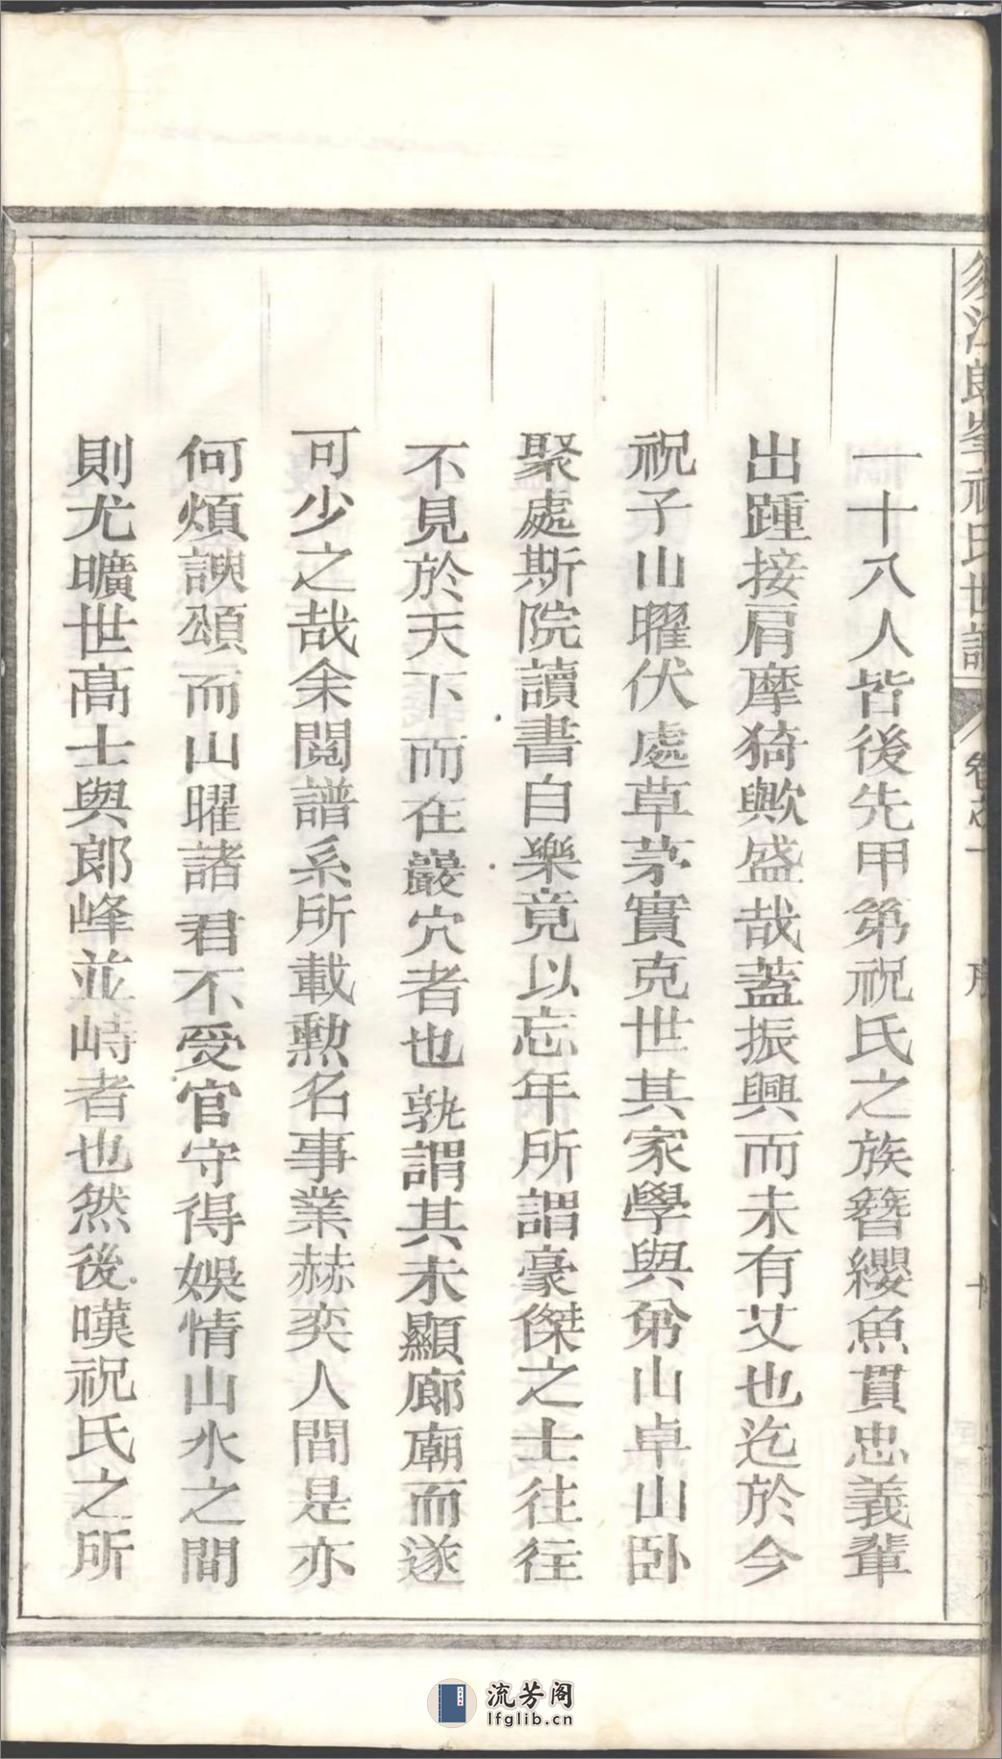 一十八人皆後先甲第祝氏之族簪纓魚貫忠義輩
出踵接肩摩猗歟盛哉蓋振興而未有艾也迄於今
祝子山曜伏處草茅實克世其家學與弟山卓山卧
聚處斯院讀書自樂竟以忘年所謂豪傑之士往往
不見於天下而在巖穴者也孰謂其未顯廊廟而遂
可少之哉余閱譜系所載勲名事業赫奕人間是亦
何煩諛頌而山曜諸君不受官守得娛情山水之間
則尤曠世高士與郎峰並峙者也然後嘆祝氏之所
江郎峯祝氏世譜
卷之一
流芳阁
lfglib.cn